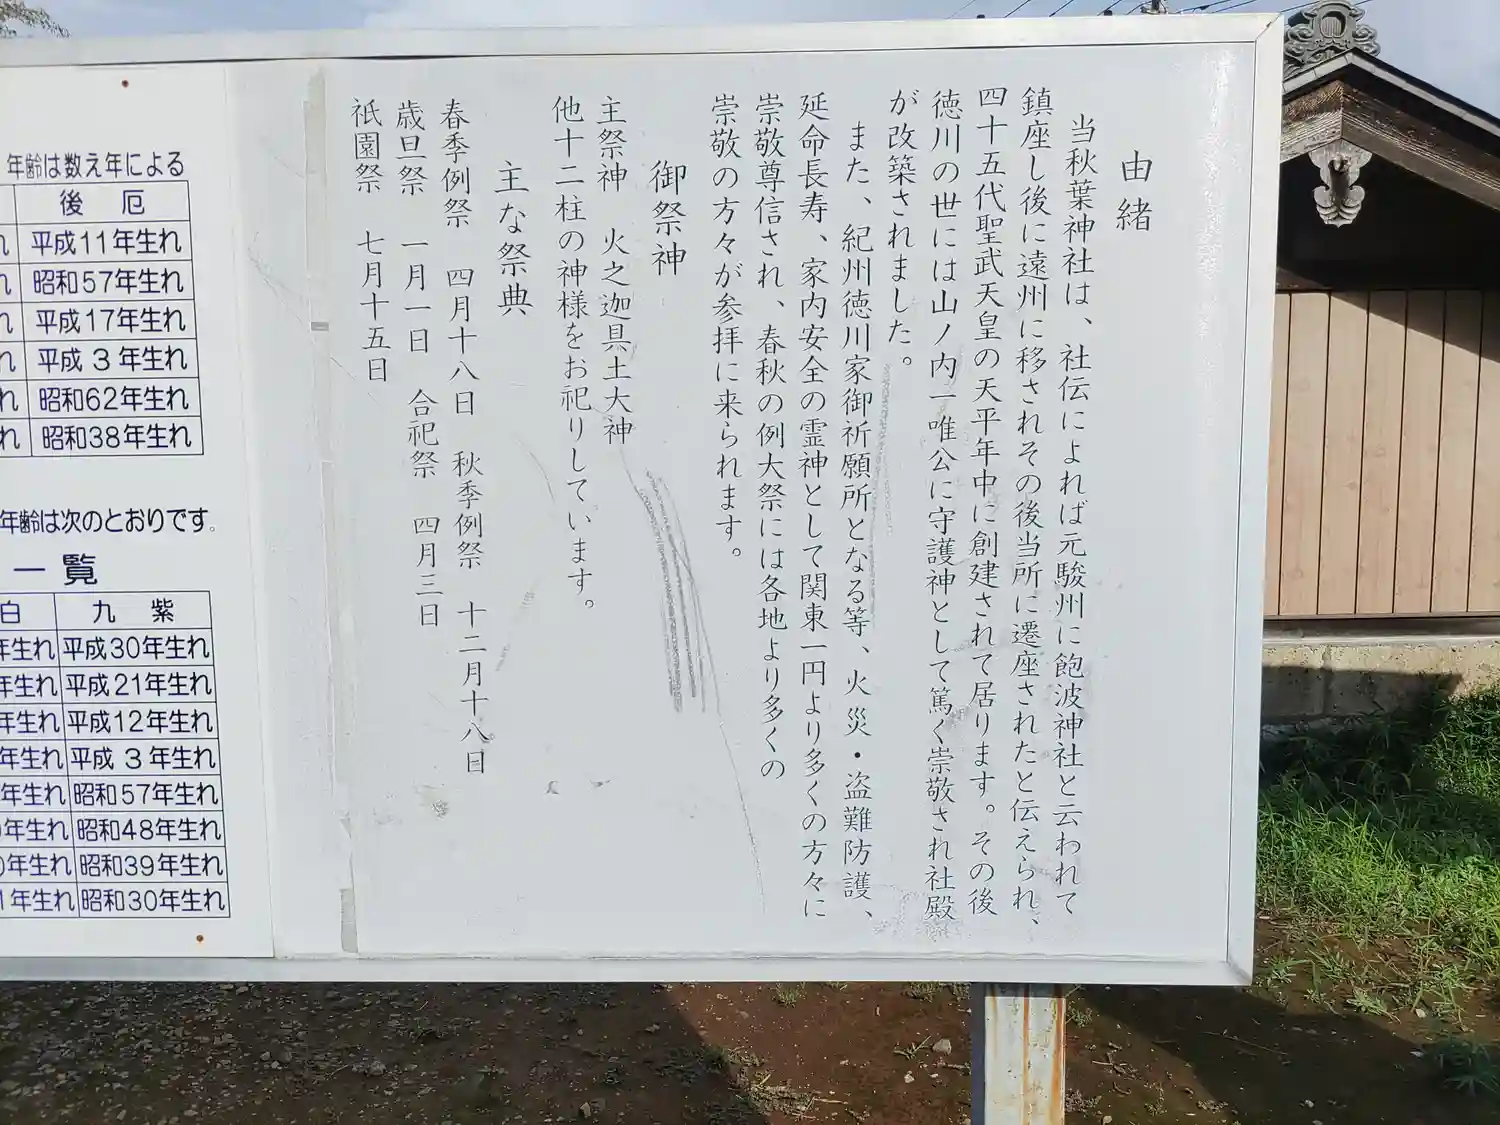 由緒
当秋葉神社は、社伝によれば元駿州に飽波神社と云われて
鎮座し後に遠州に移されその後当所に遷座されたと伝えられ、
四十五代聖武天皇の天平年中に創建されて居ります。その後
徳川の世には山ノ内一唯公に守護神として篤く崇敬され社殿
が改築されました。
また、紀州徳川家御祈願所となる等、火災・盗難防護、
延命長寿、家内安全の霊神として関東一円より多くの方々に
崇敬尊信され、春秋の例大祭には各地より多くの
崇敬の方々が参拝に来られます。
御祭神
主祭神 火之迦具土大神
他十二柱の神様をお祀りしています。
主な祭典
春季例祭 四月十八日 秋季例祭 十二月十八日
歳旦祭 一月一日 合祀祭 四月三日
祇園祭 七月十五日
年齢は数え年による
後 厄
れ 平成11年生れ
れ 昭和57年生れ
れ 平成17年生れ
れ 平成3年生れ
れ 昭和62年生れ
れ 昭和38年生れ
年齢は次のとおりです。
一覧
白 九 紫
年生れ 平成30年生れ
年生れ 平成21年生れ
年生れ 平成12年生れ
年生れ 平成3年生れ
年生れ 昭和57年生れ
年生れ 昭和48年生れ
0年生れ 昭和39年生れ
1年生れ 昭和30年生れ